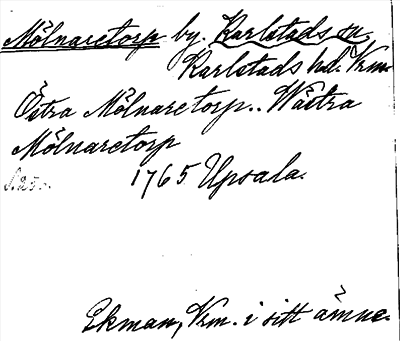 Mölnaretorp by. Karlstads sn.
Karlstads hd. Vrm.
Östra Mölnaretorp.. Wästra
Mölnaretorp
1765 Upsala.
Ekman, Vrm. i sitt ämne.